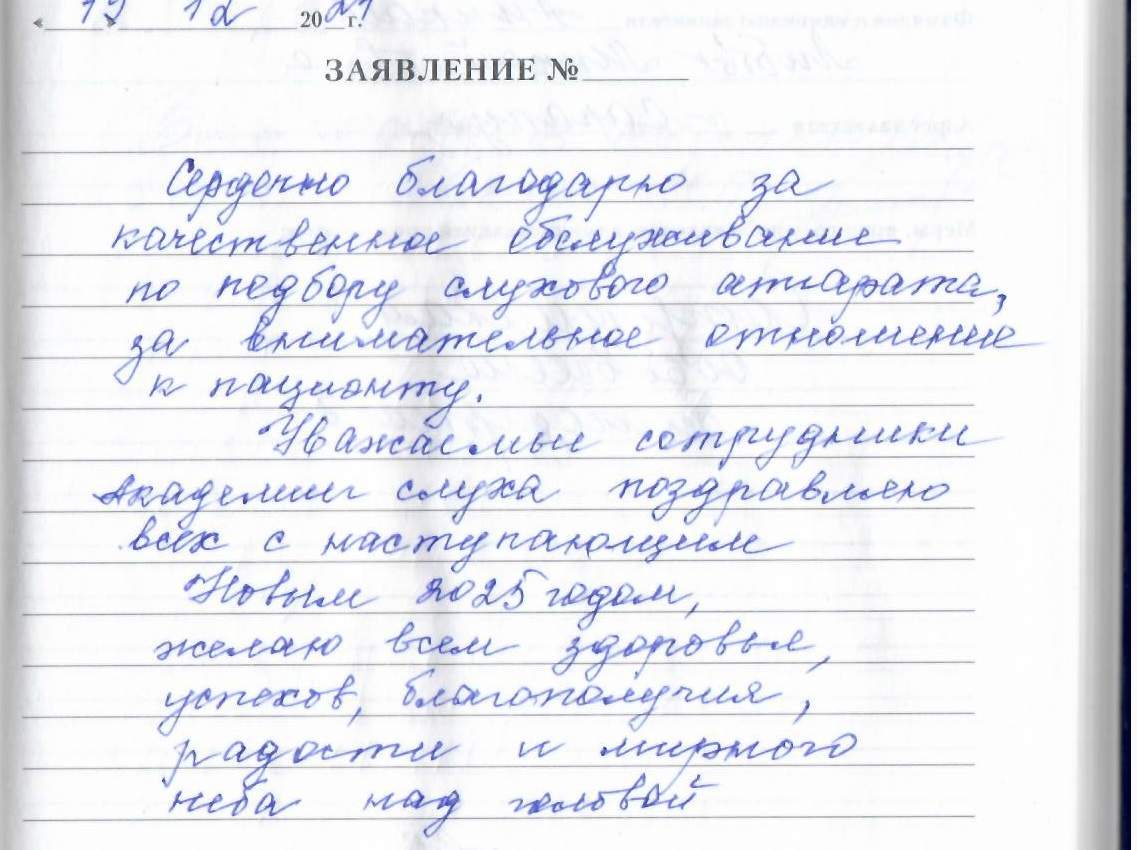 « 19 » 12 2024 г.
ЗАЯВЛЕНИЕ №
Сердечно благодарю за
качественное обслуживание
по подбору слухового аппарата,
за внимательное отношение
к пациэнту.
Уважаемые сотрудники
Академии слуха поздравляю
всех с наступающим
Новым 2025 годом,
желаю всем здоровья,
успехов, благополучия,
радости и мирного
неба над головой